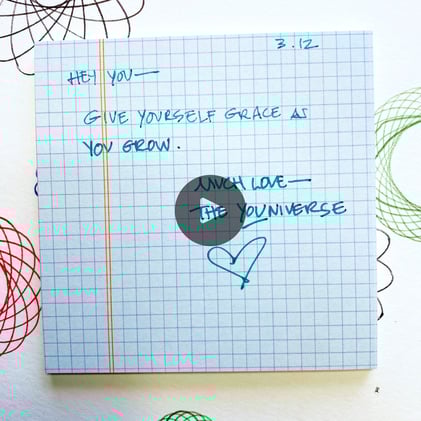 3.12
HEY YOU—
GIVE YOURSELF GRACE AS
YOU GROW.
MUCH LOVE—
THE YOUNIVERSE